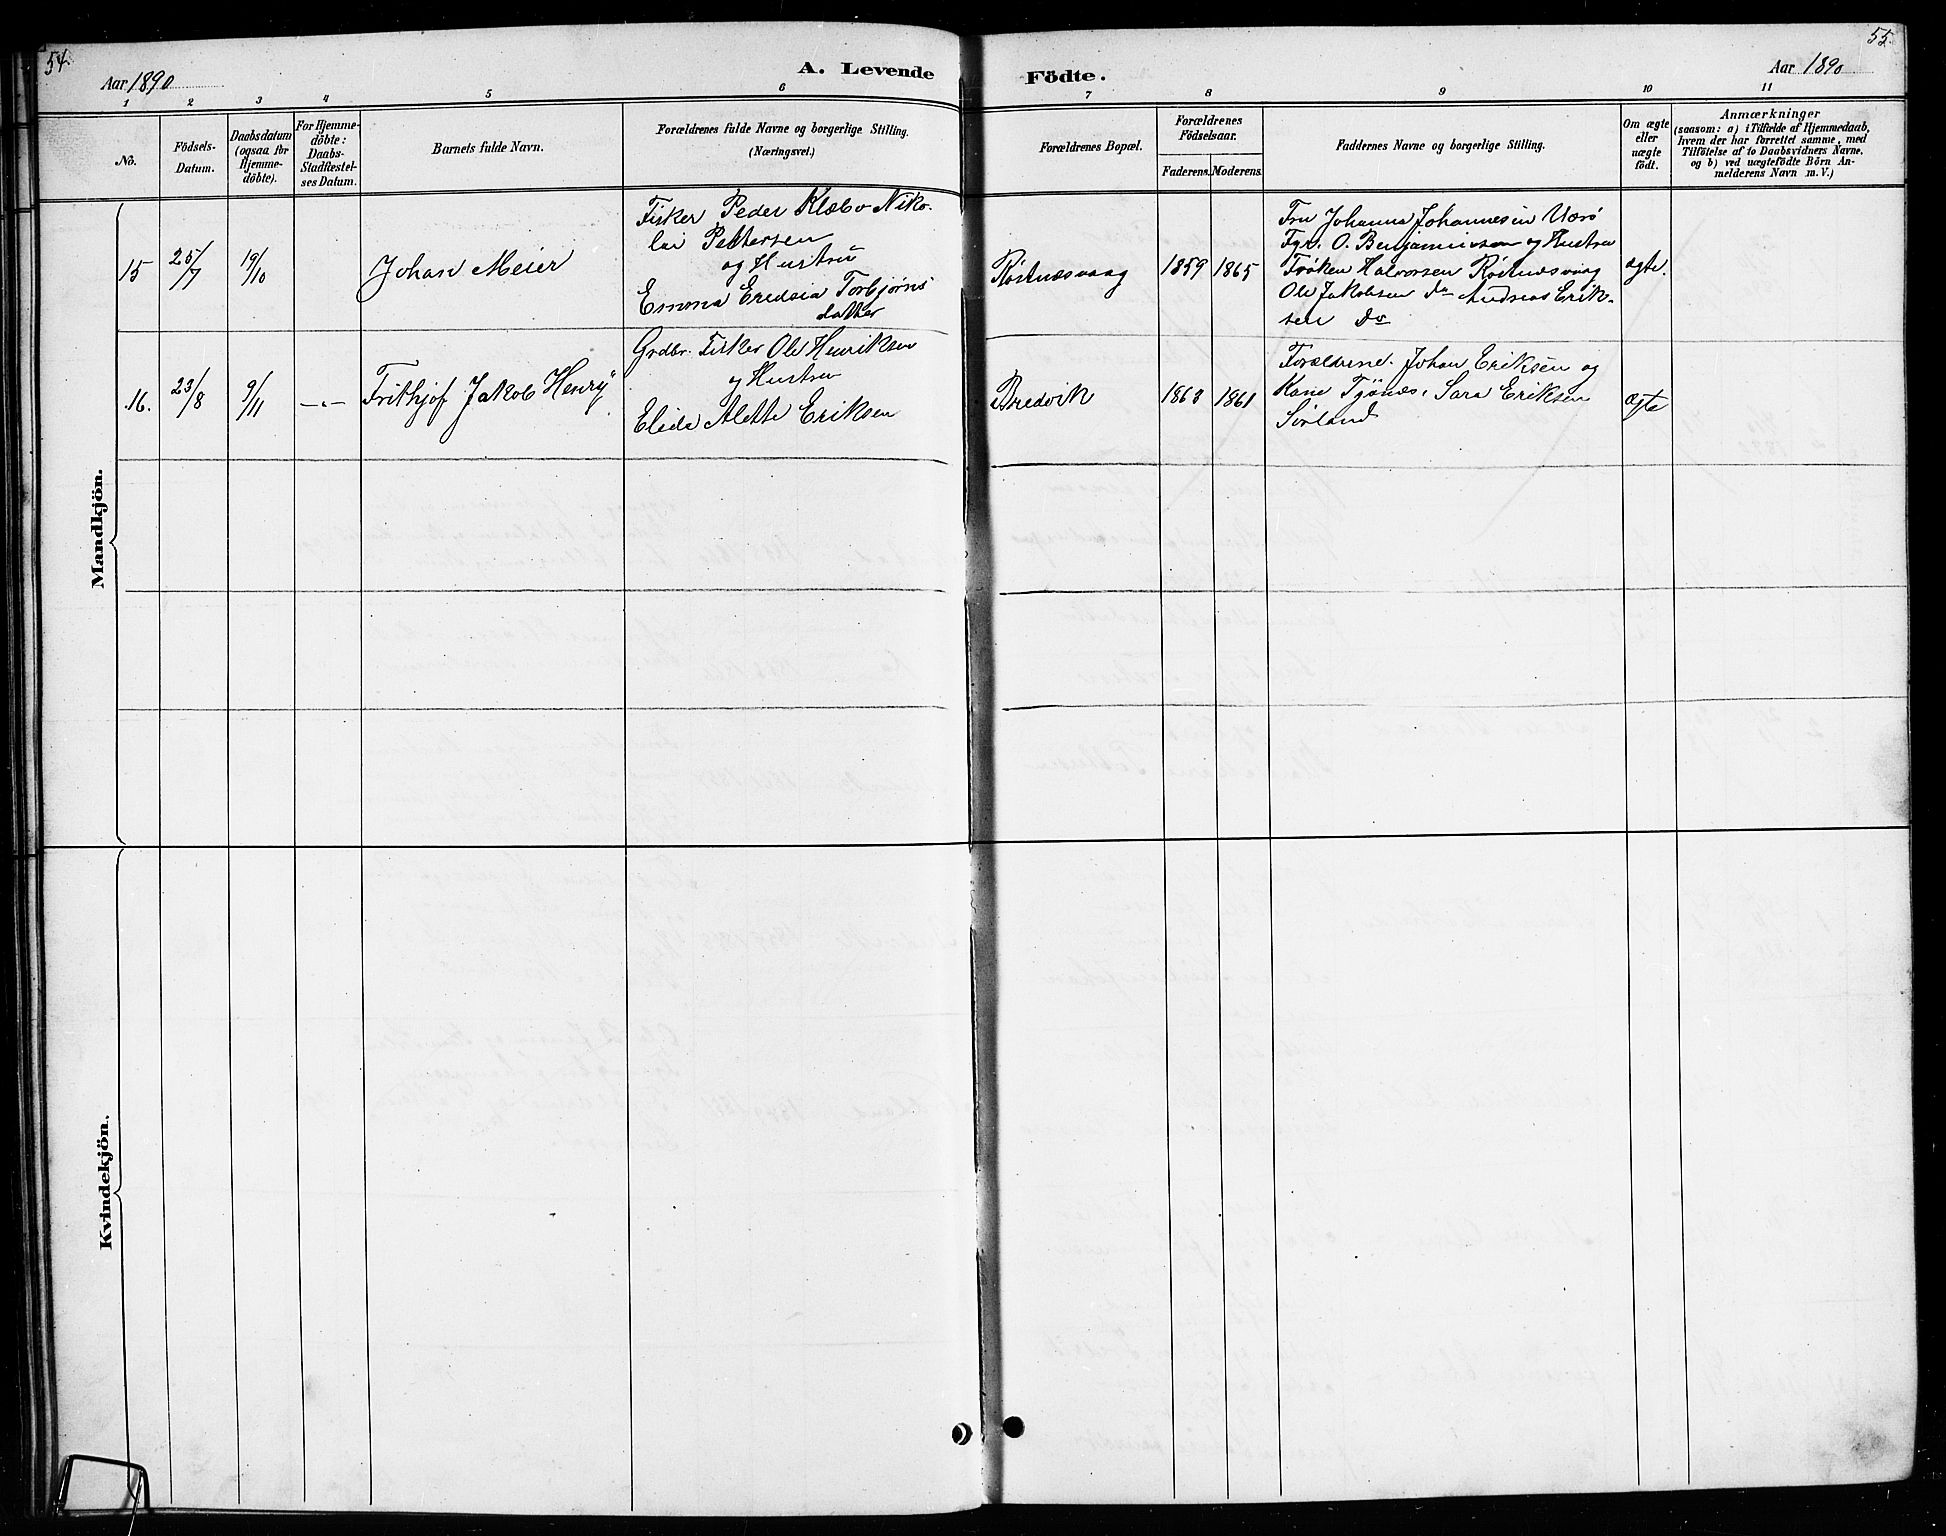 54.
55.
Aar 1890
A. Levende
Födte.
Aar 1890
1
2
3
4
5
6
7
8
9
10
11
No.
Födsels-
Datum.
Daabsdatum
(ogsaa for
Hjemme-
döbte).
For Hjemme-
döbte:
Daabs-
Stadfæstel-
ses Datum.
Barnets fulde Navn.
Forældrenes fulde Navne og borgerlige Stilling.
(Næringsvei.)
Forældrenes Bopæl.
Forældrenes
Födselsaar.
Faderens.
Moderens.
Faddernes Navne og borgerlige Stilling.
Om ægte
eller
uægte
födt.
Anmærkninger
(saasom: a) i Tilfælde af Hjemmedaab,
hvem der har forrettet samme, med
Tilföielse af to Daabsvidners Navne,
og b) ved uægtefödte Börn An-
melderens Navn m. V.)
Mandkjön.
15
25/7
19/10
Johan Meier
Fisker Peder Klæbo Niko-
lai Pettersen
og Hustru
Emma Eredsia Torbjørns
datter
Röstnæsvaag
1859
1865
Fru Johanna Johannesen Værö
Fyrv. O. Benjaminsen og Hustru
Frøken Halvorsen Röstnæsvaag
Ole Jakobsen do Andreas Erik-
sen do
ægte.
16.
23/8
9/11
-"-
Frithjof Jakob Henry
Grdbr. Fisker Ole Henriksen
og Hustru
Elida Alette Eriksen
Bredvik
1863
1861
Forældrene. Johan Eriksen og
Kone Tjönæs, Sara Eriksen
Sörland
ægte
Kvindekjön.